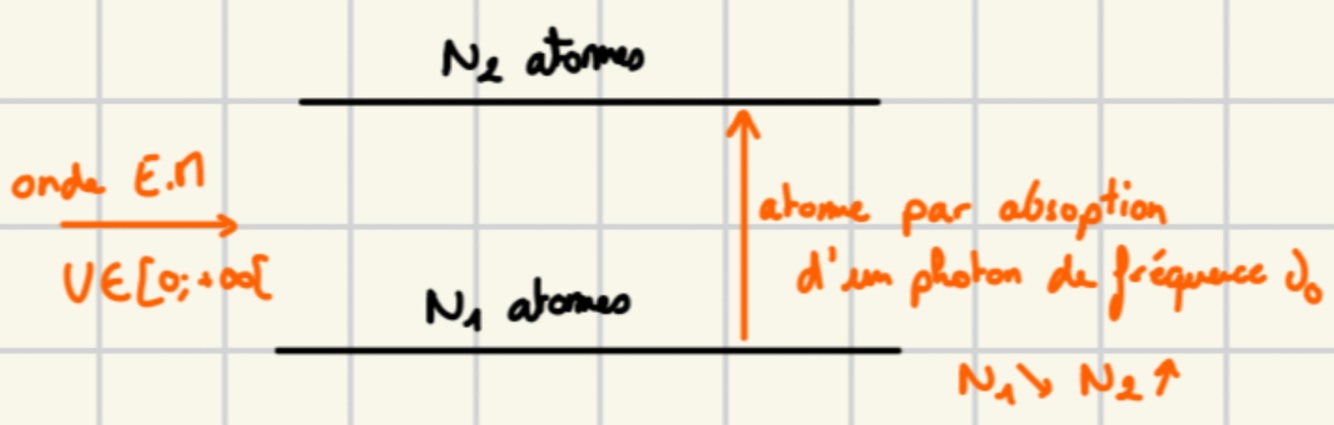 N₂ atomes
onde E.M
atome par absoption
ν∈[0;+∞[
d'un photon de fréquence ν₀
N₁ atomes
N₁↘ N₂↗